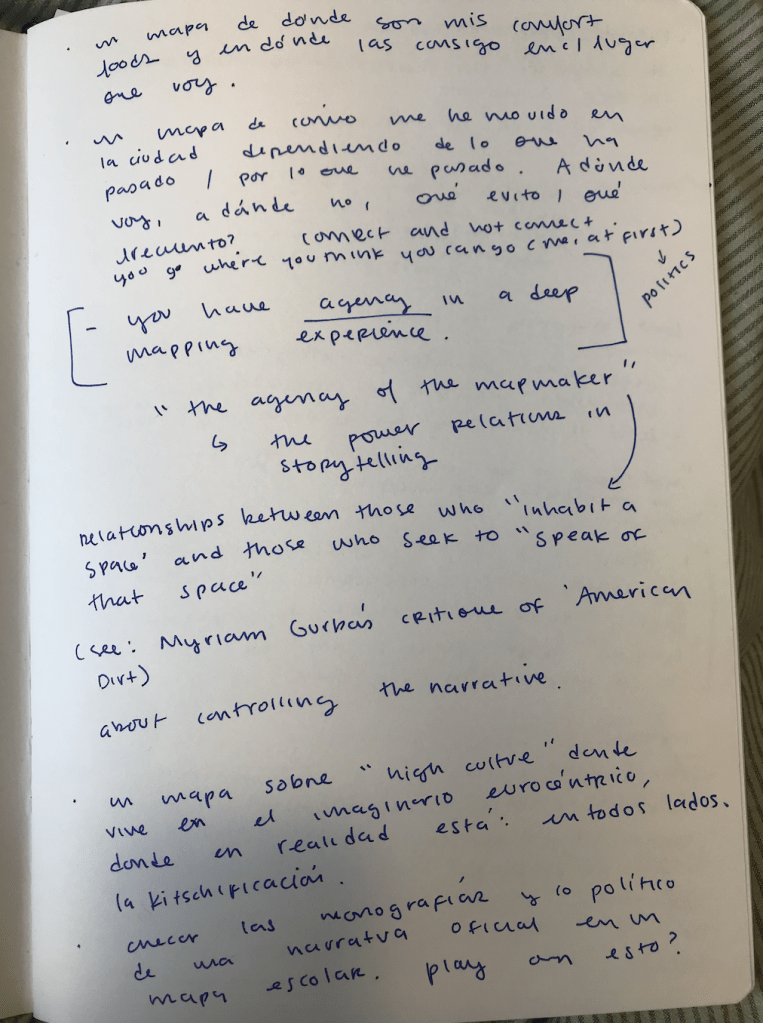 · un mapa de dónde son mis comfort
foods y en dónde las consigo en el lugar
que voy.
· un mapa de cómo me he movido en
la ciudad dependiendo de lo que ha
pasado / por lo que he pasado. A dónde
voy, a dónde no, qué evito, qué
frecuento? connect and not connect
you go where you think you can go (me, at first)
↓
politics
[- you have agency in a deep
mapping experience.]
"the agency of the mapmaker"
↳ the power relations in
storytelling
relationships between those who "inhabit a
space' and those who seek to "speak of
that space"
(see: Myriam Gurba's critique of 'American
Dirt)
about controlling the narrative.
· un mapa sobre "high cultre" donde
vive en el imaginario eurocéntrico,
donde en realidad está: en todos lados.
la kitschificación.
· checar las monografías y lo político
de una narratva oficial en un
mapa escolar. play con esto?